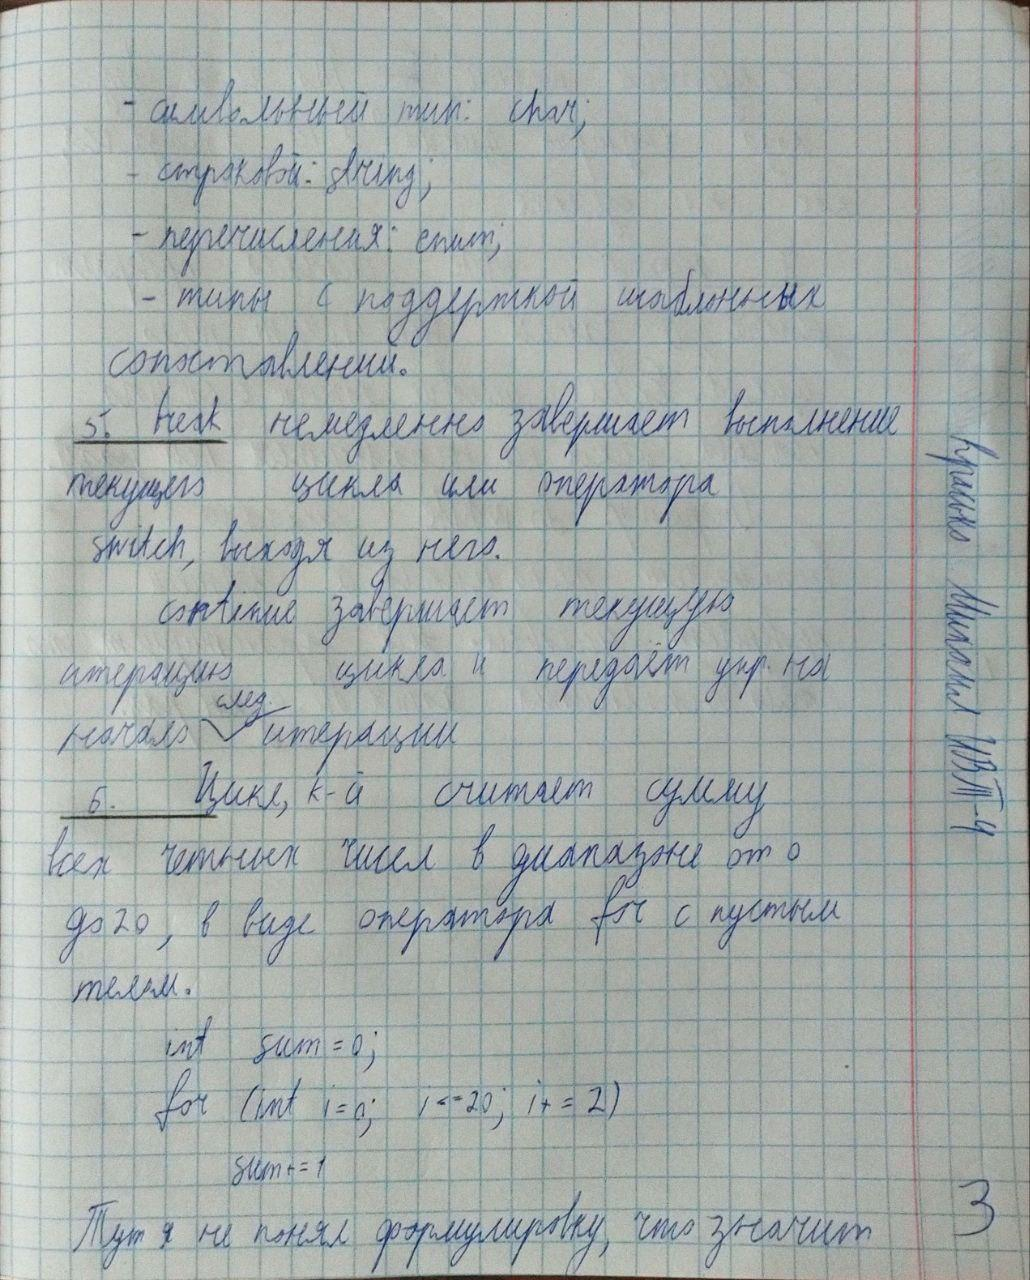 - символьный тип: char;
- строковой: string;
- перечисления: enum;
- типы с поддержкой шаблонных
сопоставлении.
5. break немедленно завершает выполнение
текущего цикла или оператора
switch, выходя из него.
continue завершает текущую
итерацию цикла и передаёт упр. на
след.
начало итерации
6. Цикл, к-й считает сумму
всех четных чисел в диапазоне от 0
до 20, в виде оператора for с пустым
телом.
int sum = 0;
for (int i = 0; i <= 20; i += 2)
sum += i
Тут я не понял формулировку, что значит
Михаил ИВТ-4
3